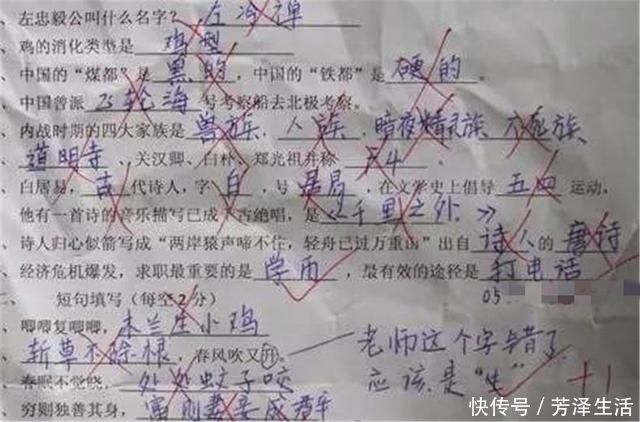 左忠毅公叫什么名字？左冷禅
鸡的消化类型是 鸡型
、中国的“煤都”是 黑的 ，中国的“铁都”是 硬的 。
、中国曾派 飞轮海 号考察船去北极考察。
、内战时期的四大家族是 兽族、人族、暗夜精灵族、不死族
、道明寺、关汉卿、白朴、郑光祖并称 F4 。
、白居易，古代诗人，字 白 ，号 居易 ，在文学史上倡导 五四 运动，
他有一首诗的音乐描写已成千古绝唱，是《千里之外》
、诗人归心似箭写成“两岸猿声啼不住，轻舟已过万重山”出自 诗人 的 唐诗
、经济危机爆发，求职最重要的是 学历 ，最有效的途径是 打电话
05
二、 短句填写（每空2分）
、唧唧复唧唧，木兰生小鸡
、斩草不除根，春风吹又开。——老师这个字错了
应该是“生”
+1
、春眠不觉晓，处处蚊子咬
、穷则独善其身，富则妻妾成群
快传号／芳泽生活